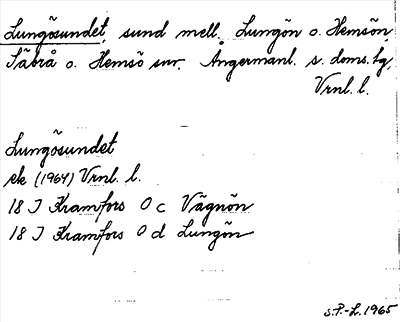 Lungösundet, sund mell. Lungön o. Hemsön,
Säbrå o. Hemsö snr. Ångermanl. s. doms. hg,
Vrnl. l.
Lungösundet
ek (1964) Vrnl. l.
18 J Kramfors 0 c Vägnön
18 J Kramfors 0 d Lungön
S.P.-L. 1965